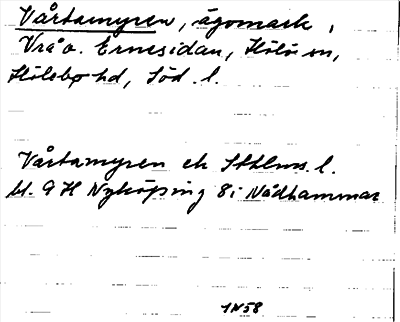 Vårtamyren, ägomark,
Vrå o. Ernesidan, Hölö sn,
Hölebo hd, Söd. l.
Vårtamyren ek Sthlms. l.
bl. 9 H Nyköping 8 i Nådhammar
1N58